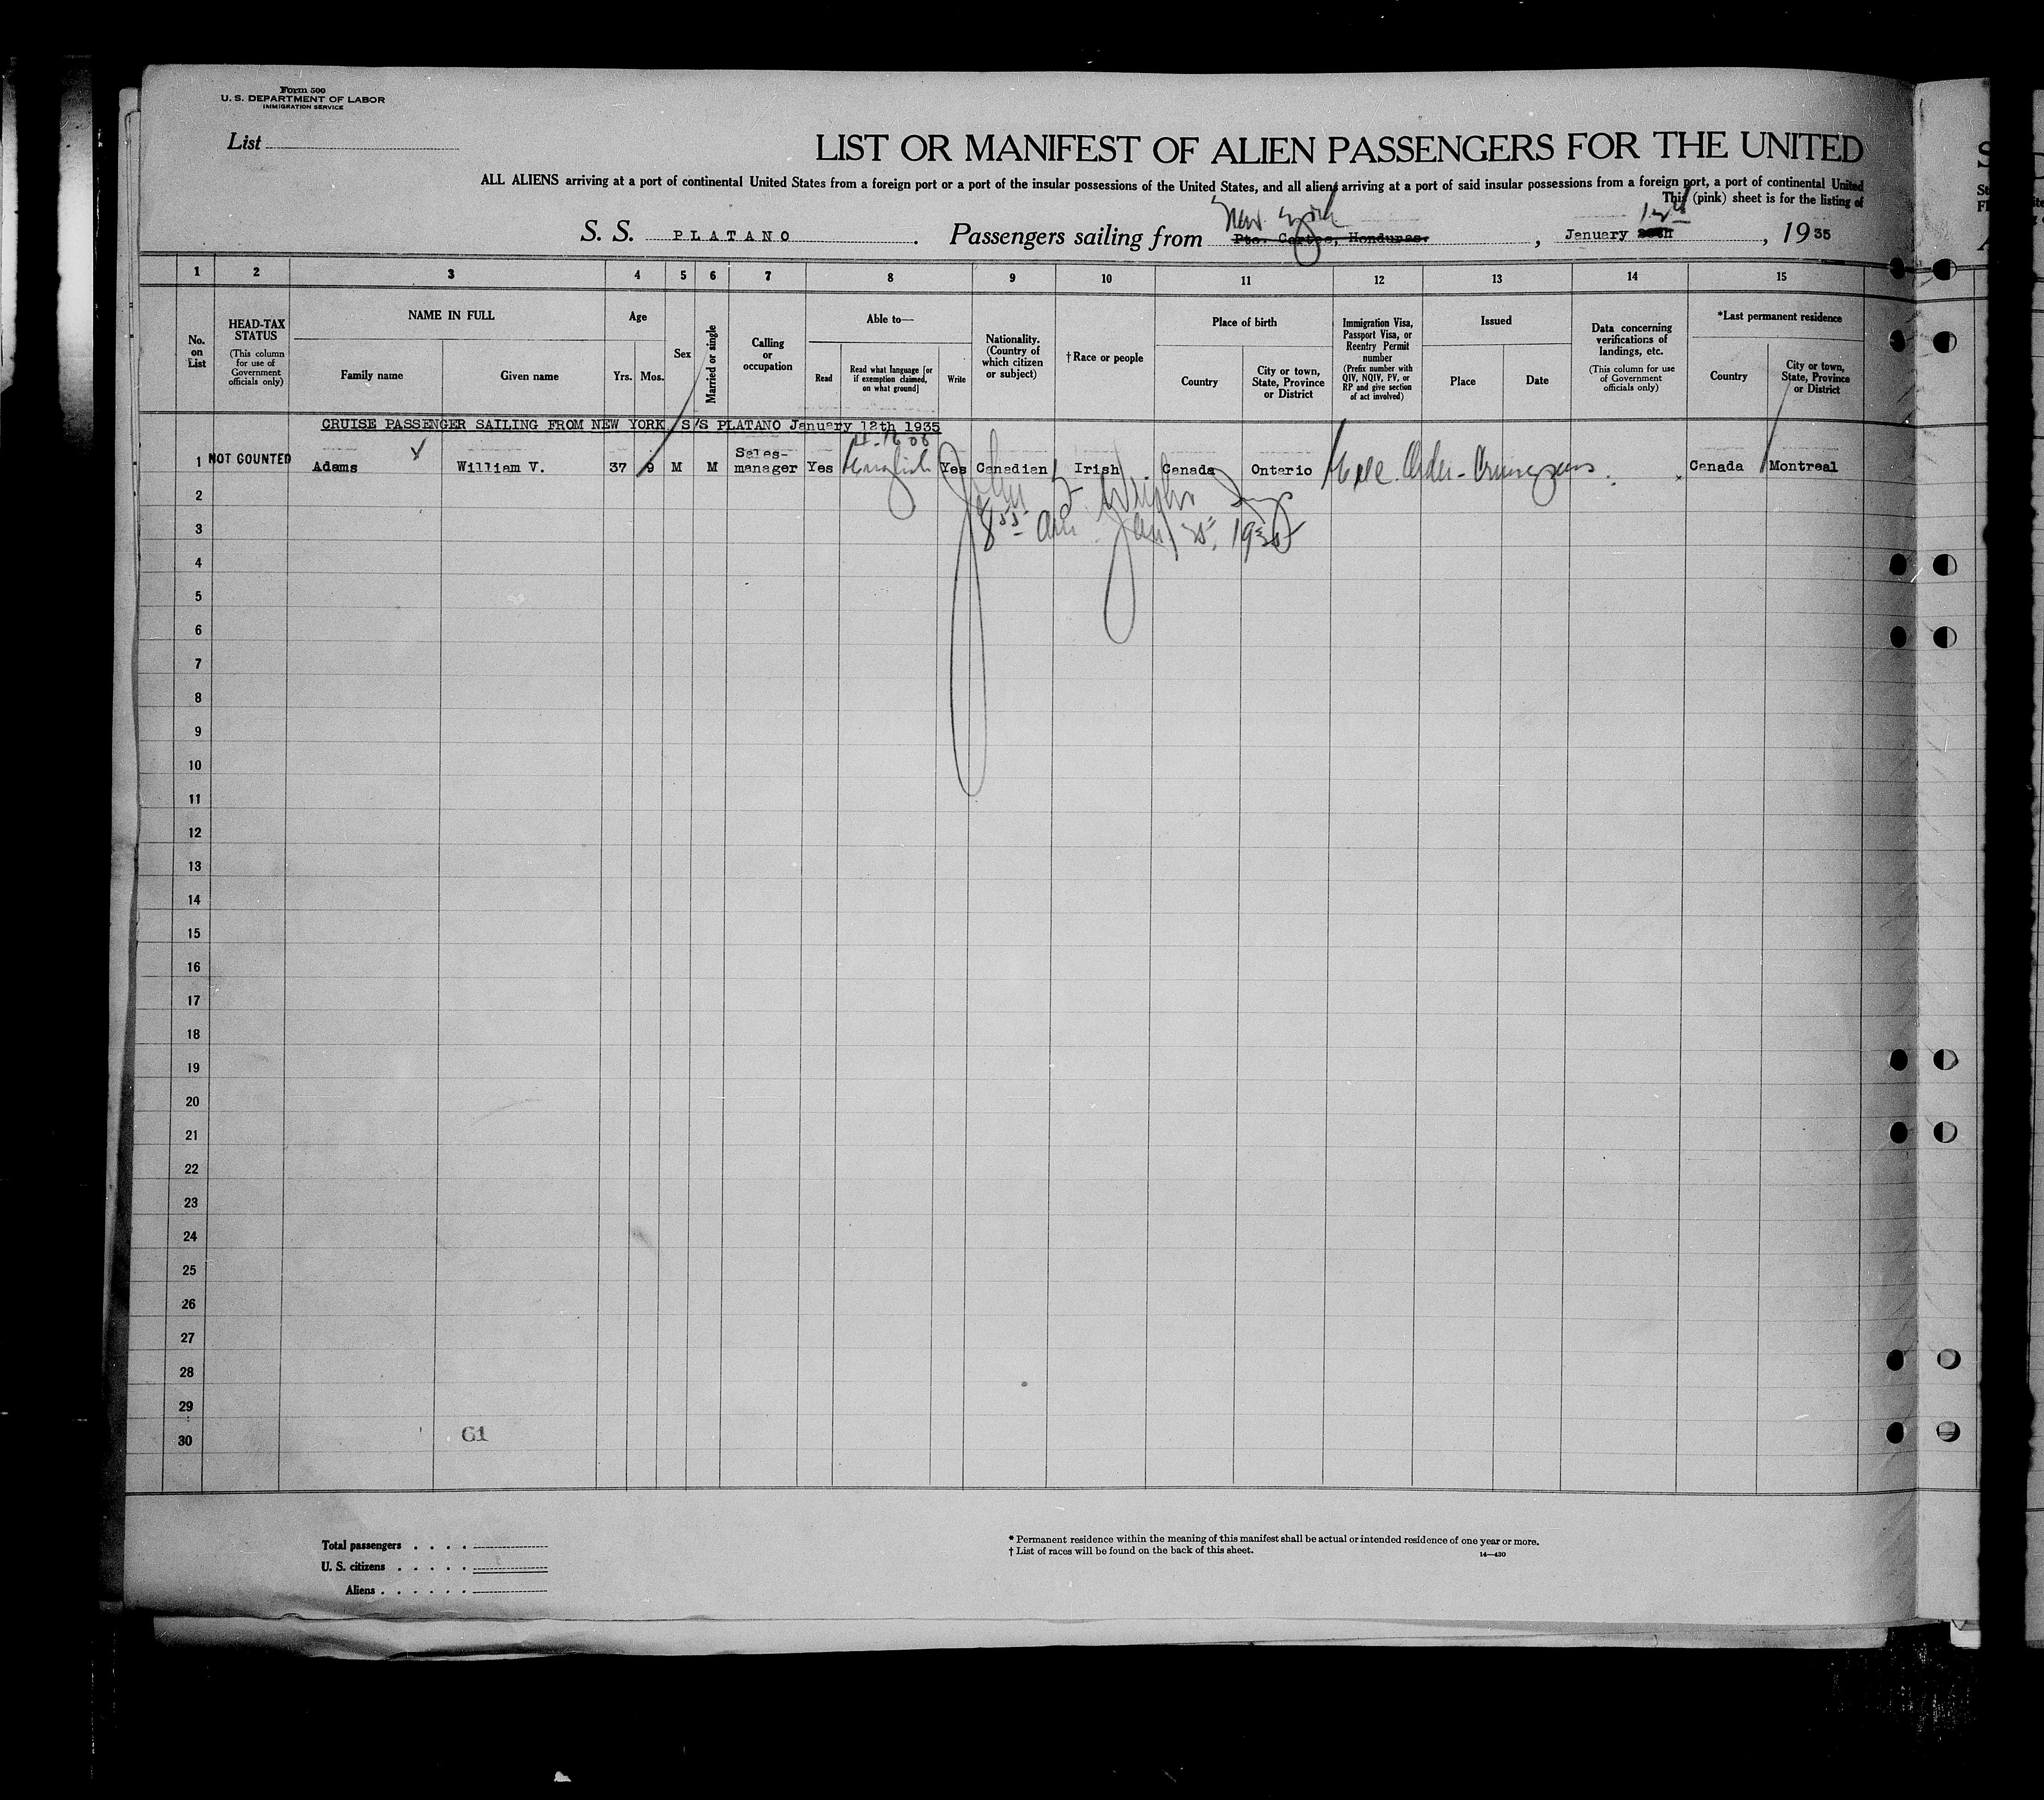 Form 500
U. S. DEPARTMENT OF LABOR
IMMIGRATION SERVICE
List
LIST OR MANIFEST OF ALIEN PASSENGERS FOR THE UNITED
ALL ALIENS arriving at a port of continental United States from a foreign port or a port of the insular possessions of the United States, and all aliens arriving at a port of said insular possessions from a foreign port, a port of continental United
This (pink) sheet is for the listing of
New York 12th
S. S. PLATANO . Passengers sailing from Pto. Cortes, Honduras. , January , 1935
1 2 3 4 5 6 7 8 9 10 11 12 13 14 15
No. on List
HEAD-TAX STATUS (This column for use of Government officials only)
NAME IN FULL
Family name Given name
Age
Yrs. Mos.
Sex
Married or single
Calling or occupation
Able to—
Read Read what language [or if exemption claimed, on what ground] Write
Nationality. (Country of which citizen or subject)
†Race or people
Place of birth
Country City or town, State, Province or District
Immigration Visa, Passport Visa, or Reentry Permit number (Prefix number with QIV, NQIV, PV, or RP and give section of act involved)
Issued
Place Date
Data concerning verifications of landings, etc. (This column for use of Government officials only)
*Last permanent residence
Country City or town, State, Province or District
CRUISE PASSENGER SAILING FROM NEW YORK S/S PLATANO January 12th 1935
1 NOT COUNTED Adams William V. 37 9 M M Sales-manager Yes English Yes Canadian Irish Canada Ontario Canada Montreal
2
3 8 55 am Jan 25, 1935
4
5
6
7
8
9
10
11
12
13
14
15
16
17
18
19
20
21
22
23
24
25
26
27
28
29
30
G1
Total passengers . . . .
U. S. citizens . . . . .
Aliens . . . . . .
* Permanent residence within the meaning of this manifest shall be actual or intended residence of one year or more.
† List of races will be found on the back of this sheet.
14—430